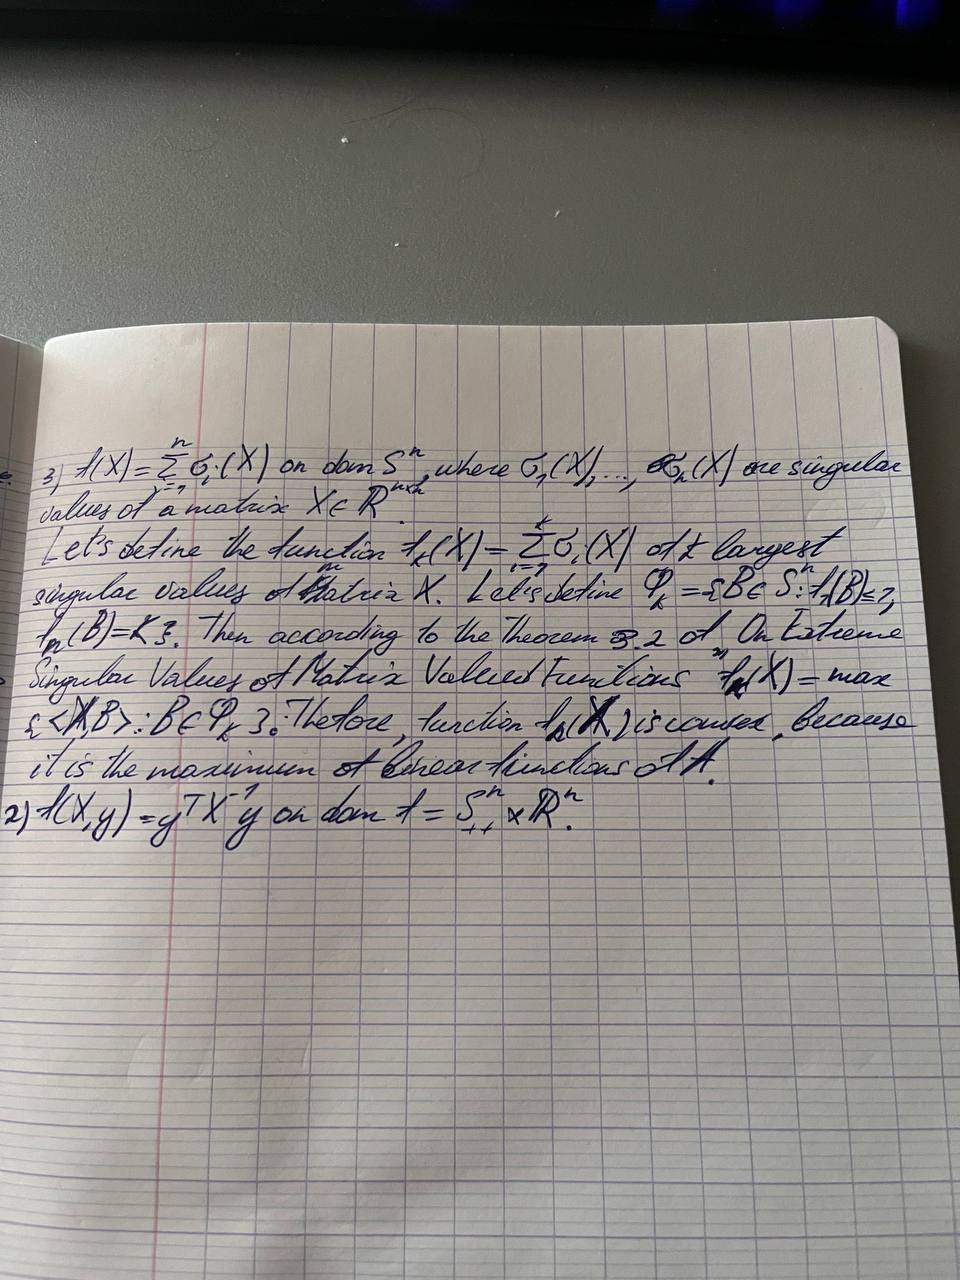 3) f(X) = Σ_{i=1}^{n} σ_i(X) on dom S^n, where σ_1(X), ..., σ_n(X) are singular
values of a matrix X ∈ R^{n×n}.
Let's define the function f_k(X) = Σ_{i=1}^{k} σ_i(X) of k largest
singular values of matrix X. Let's define φ_k = {B ∈ S^n : f_1(B) ≤ 1,
f_n(B) = k}. Then according to the Theorem 3.2 of „On Extreme
Singular Values of Matrix Valued Functions" f_k(X) = max
{<X,B> : B ∈ φ_k}. Thefore, function f_k(X) is convex, because
it is the maximum of linear functions of A.
2) f(X,y) = y^T X^{-1} y on dom f = S^n_{++} × R^n.